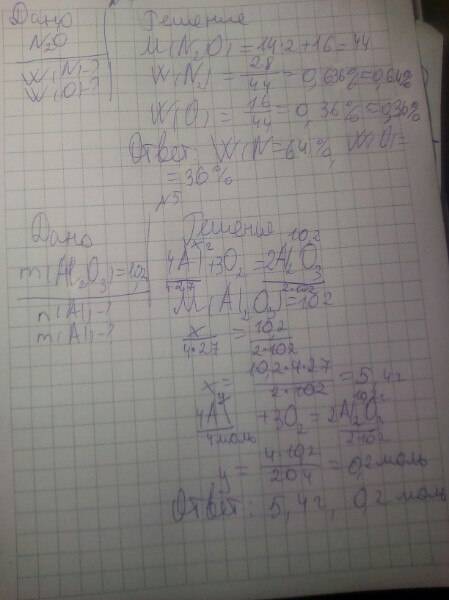 Дано
N₂O
W(N)-?
W(O)-?
Решение
M(N₂O)=14·2+16=44
W(N₂)=28/44=0,636%=0,64%
W(O)=16/44=0,36%=0,36%
Ответ: W(N)=64%, W(O)=
=36%
№5
Дано
m(Al₂O₃)=10,2
n(Al)-?
m(Al)-?
Решение
x г 10,2
4Al+3O₂=2Al₂O₃
4·27 2·102
M(Al₂O₃)=102
x/4·27=10,2/2·102
x=10,2·4·27/2·102=5,4г
y 10,2г
4Al+3O₂=2Al₂O₃
4моль 2·102
y=4·10,2/204=0,2моль
Ответ: 5,4г, 0,2 моль